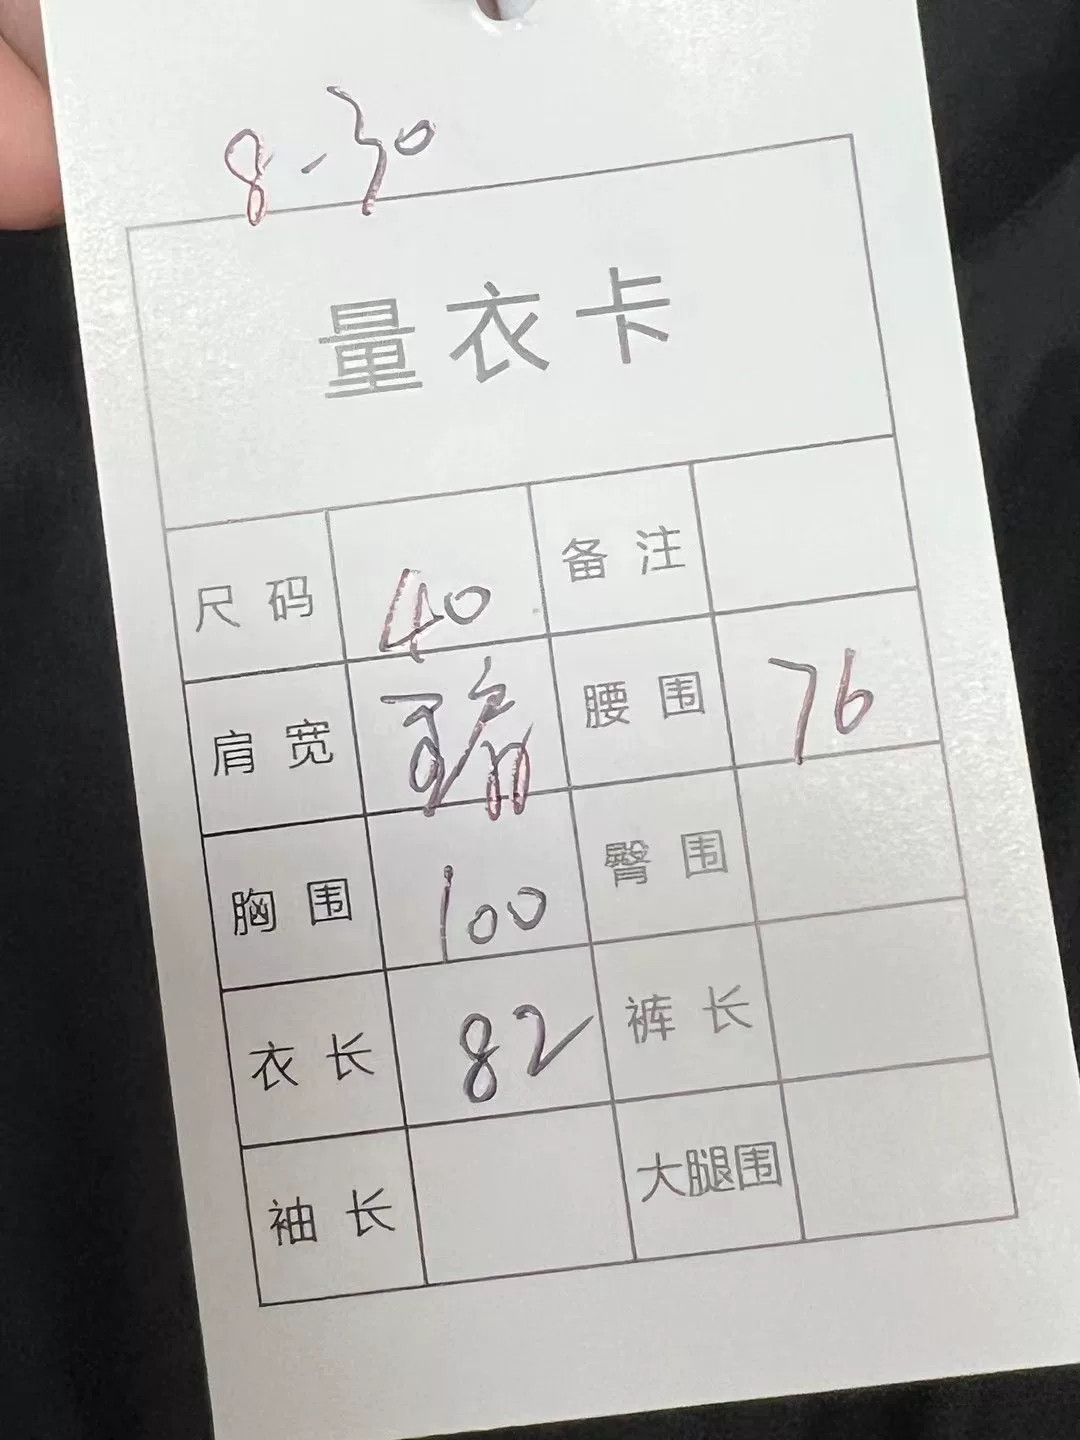 8-30
量衣卡
尺码 40 备注
肩宽 腰围 76
胸围 100 臀围
衣长 82 裤长
袖长 大腿围